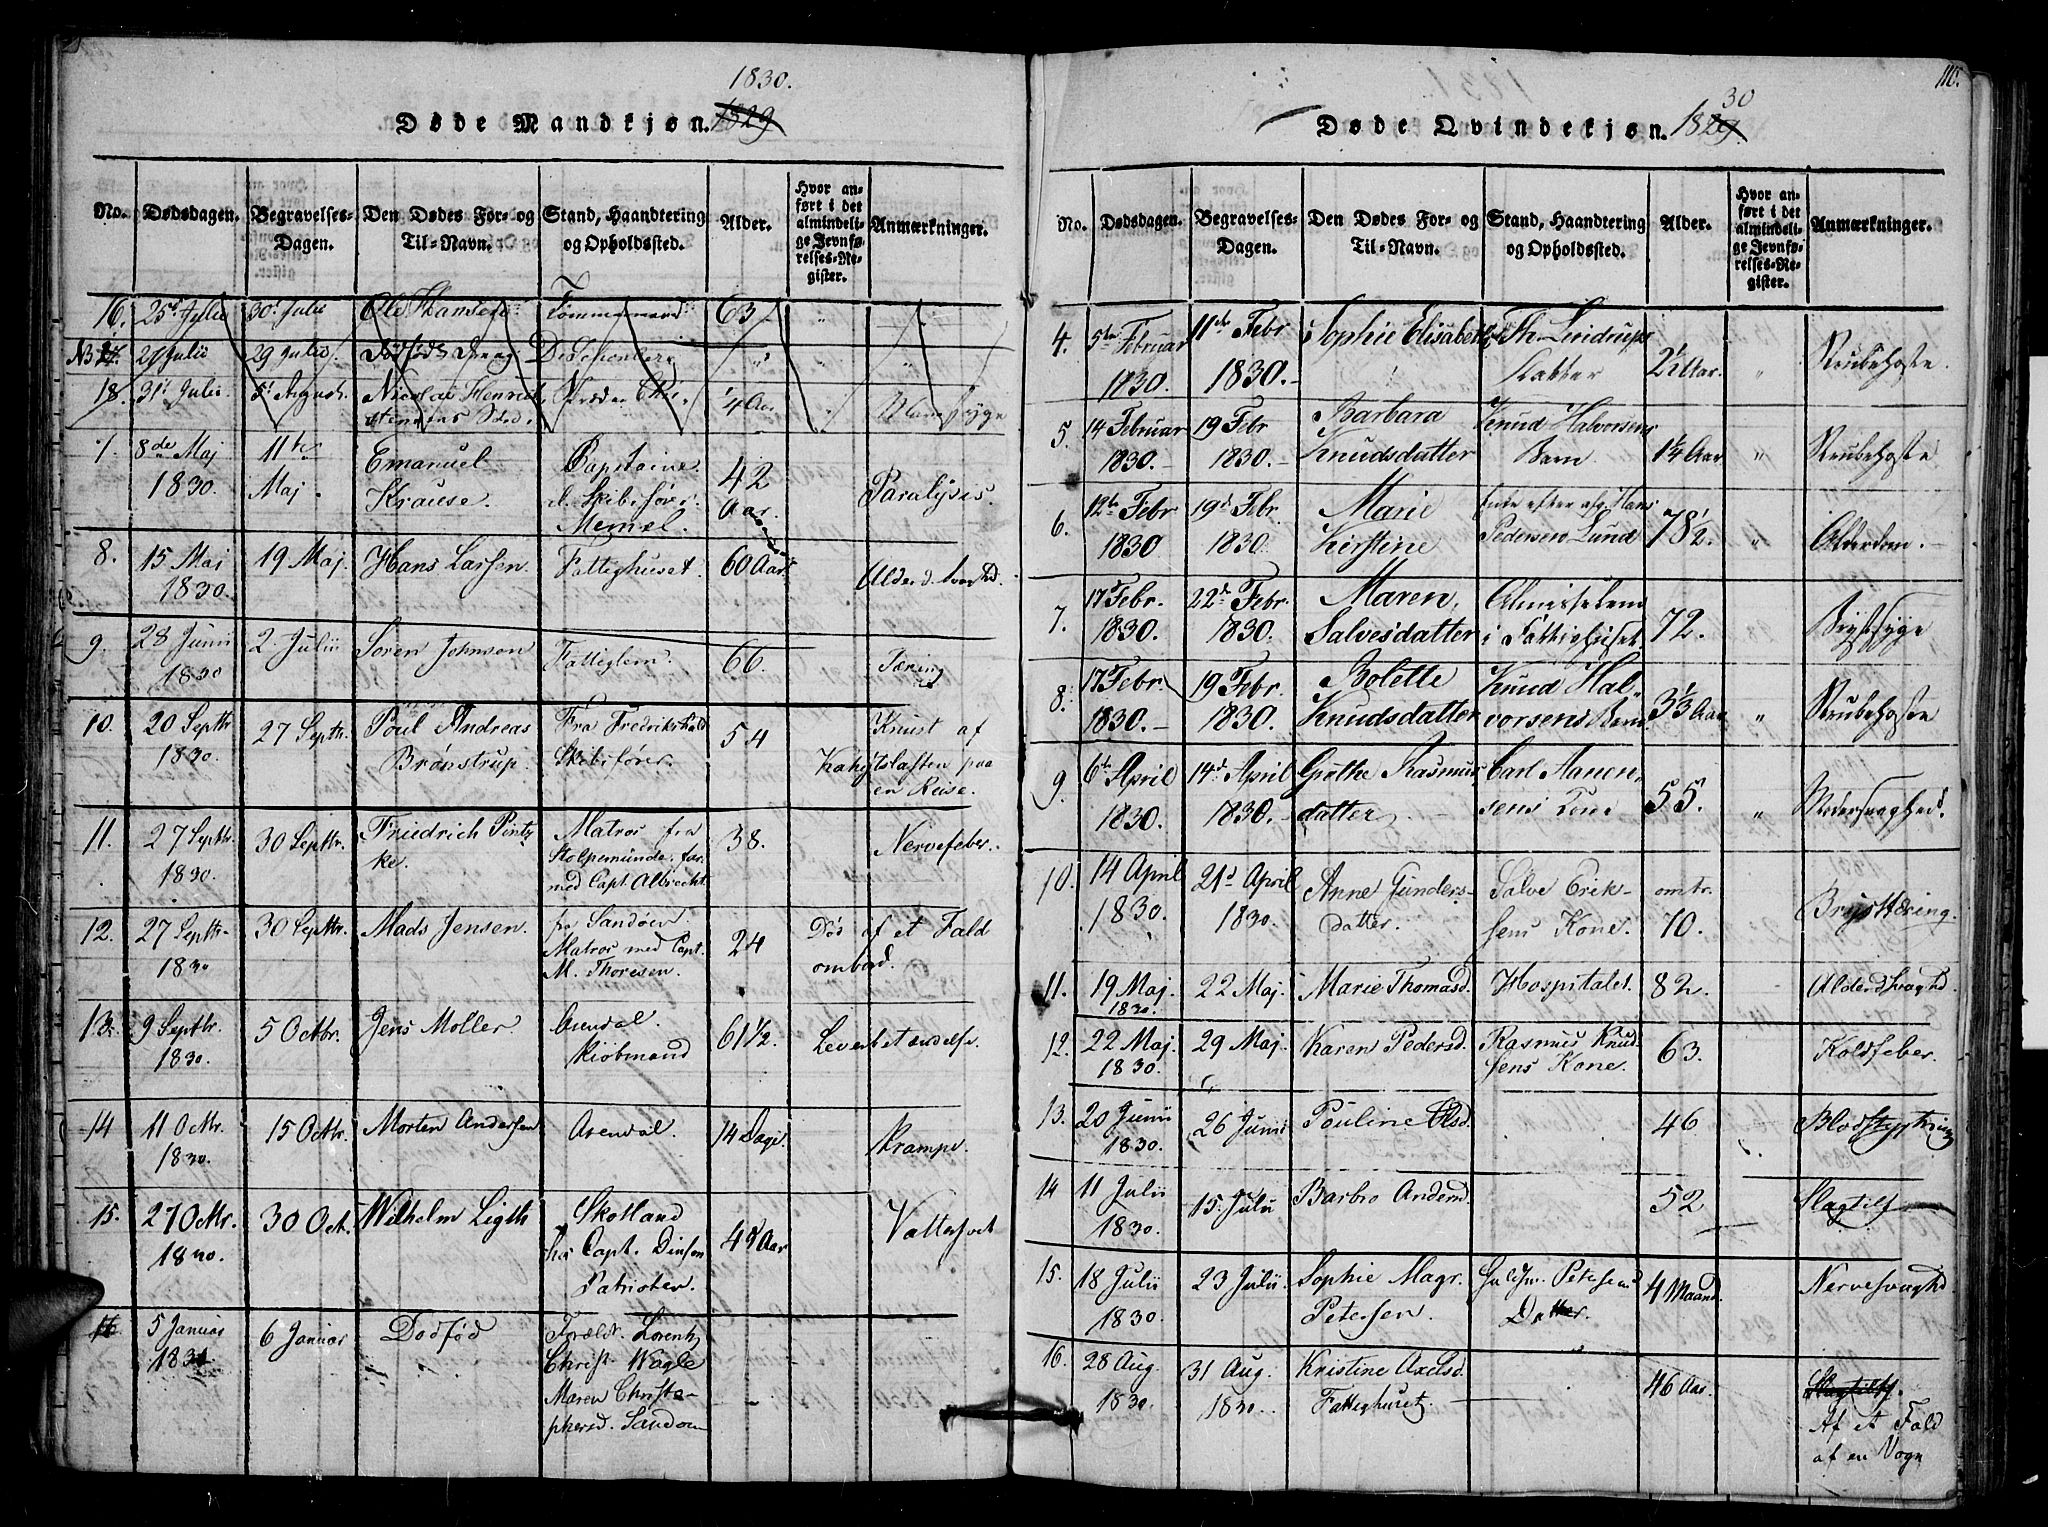 1830.
Døde Mandkjøn. 1829
No. Dødsdagen. Begravelses-Dagen. Den Dødes For- og Til-Navn. Stand, Haandtering og Opholdssted. Alder. Hvor anført i det almindelige Jevnførelses-Register. Anmærkninger.
16. 25d Julii 30t Julii Ole 63 "
29 Julii 29 Julii Dødfødt " "
18. 31t Julii 5t August Nicolai Henrich 4 Aar
7. 8de Maj 11te Emanuel Capitaine 42
1830. Maj. Krause. Skibsfører Aar. Paralysis.
Memel.
8. 15 Maj 19 Maj. Hans Larsen. Fattighuset. 60 Aar
1830.
9. 28 Junii 2 Julii Søren Johnson Fattiglem. 66. Tæring
1830
10. 20 Septbr 27 Septbr. Poul Andreas Fra Fredrikshald 54 Knust af
1830. Brønstrup. Skibsfører. Kahytslaften paa
en Reise.
11. 27 Septbr. 30 Septbr. Friedrich Pintz Matros fra 38. Nervefeber.
1830. ke. Stolpemünde. far.
med Capt. Albrecht.
12. 27 Septbr. 30 Septbr. Mads Jensen. fra Sandøen 24 Død af et Fald
1830 Matros med Capt. ombord.
M. Thoresen.
13. 9 Septbr. 5 Octbr. Jens Møller. Arendal. 61 1/2. Leverbetændelse.
1830. Kiøbmand
14 11 Octbr. 15 Octbr. Morten Andersen Arendal. 14 Dage Krampe.
1830.
15. 27 Octbr. 30 Oct. Wilhelm Ligth Skotland Aar Vattersot
1830. hos Capt. Dinson
Patrioten.
16 5 Januar 6 Januar Dødfød Forældr. Lorentz
1831 Christ. Wagle
Maren Christo-
phersd. Sandøen
110.
Døde Qvindekjøn. 1829. 30
No. Dødsdagen. Begravelses-Dagen. Den Dødes For- og Til-Navn. Stand, Haandtering og Opholdssted. Alder. Hvor anført i det almindelige Jevnførelses-Register. Anmærkninger.
4. 5te Februar 11te Febr Sophie Elisabeth Th. Lindrups 2 1/2 Aar. " Strubehoste.
1830. 1830. Datter
5. 14 Februar 19 Febr Barbara Knud Halvorsens 1 1/4 Aar " Strubehoste
1830. 1830. Knudsdatter Barn.
6. 12te Febr 19d Febr. Marie Enke efter afg. Hans 78 1/2. " Alderdom.
1830 1830. Kirstine Pedersen Lund
7. 17 Febr. 22d Febr. Maren Almisselem 72. Brystsyge
1830. 1830. Salvesdatter i Fattighuset.
8. 17 Febr. 19 Febr. Bolette Knud Hal- 3 1/3 Aar " Strubehoste
1830. 1830. Knudsdatter vorsens Barn
9. 6te April 14d April Gurthe Rasmus Carl Aanon- 55. "
1830. 1830. datter sens Kone
10. 14 April 21d April Anne Gunders- Salve Erik- omtr. Brysttæring.
1830. 1830. datter. sens Kone. 70.
11. 19 Maj. 22 Maj. Marie Thomasd. Hospitalet. 82. Alderdsvaghd
1830.
12. 22 Maj. 29 Maj. Karen Pedersd. Rasmus Knud- 63. Koldfeber.
1830. sens Kone.
13. 20 Junii 26 Junii Pauline Olsd. 46 Blodstyrtning
1830.
14 11 Julii 15 Julii Barbro Andersd. 52 Slagtilf.
1830.
15. 18 Julii 23 Julii Sophie Magr. Petersens 4 Maand. Nervesvaghd
1830. Petersen Datter.
16. 28 Aug. 31 Aug. Kristine Axelsd. 46 Aar. Slagtilf.
1830. 1830. Fattighuset. Af et Fald
af en Vogn